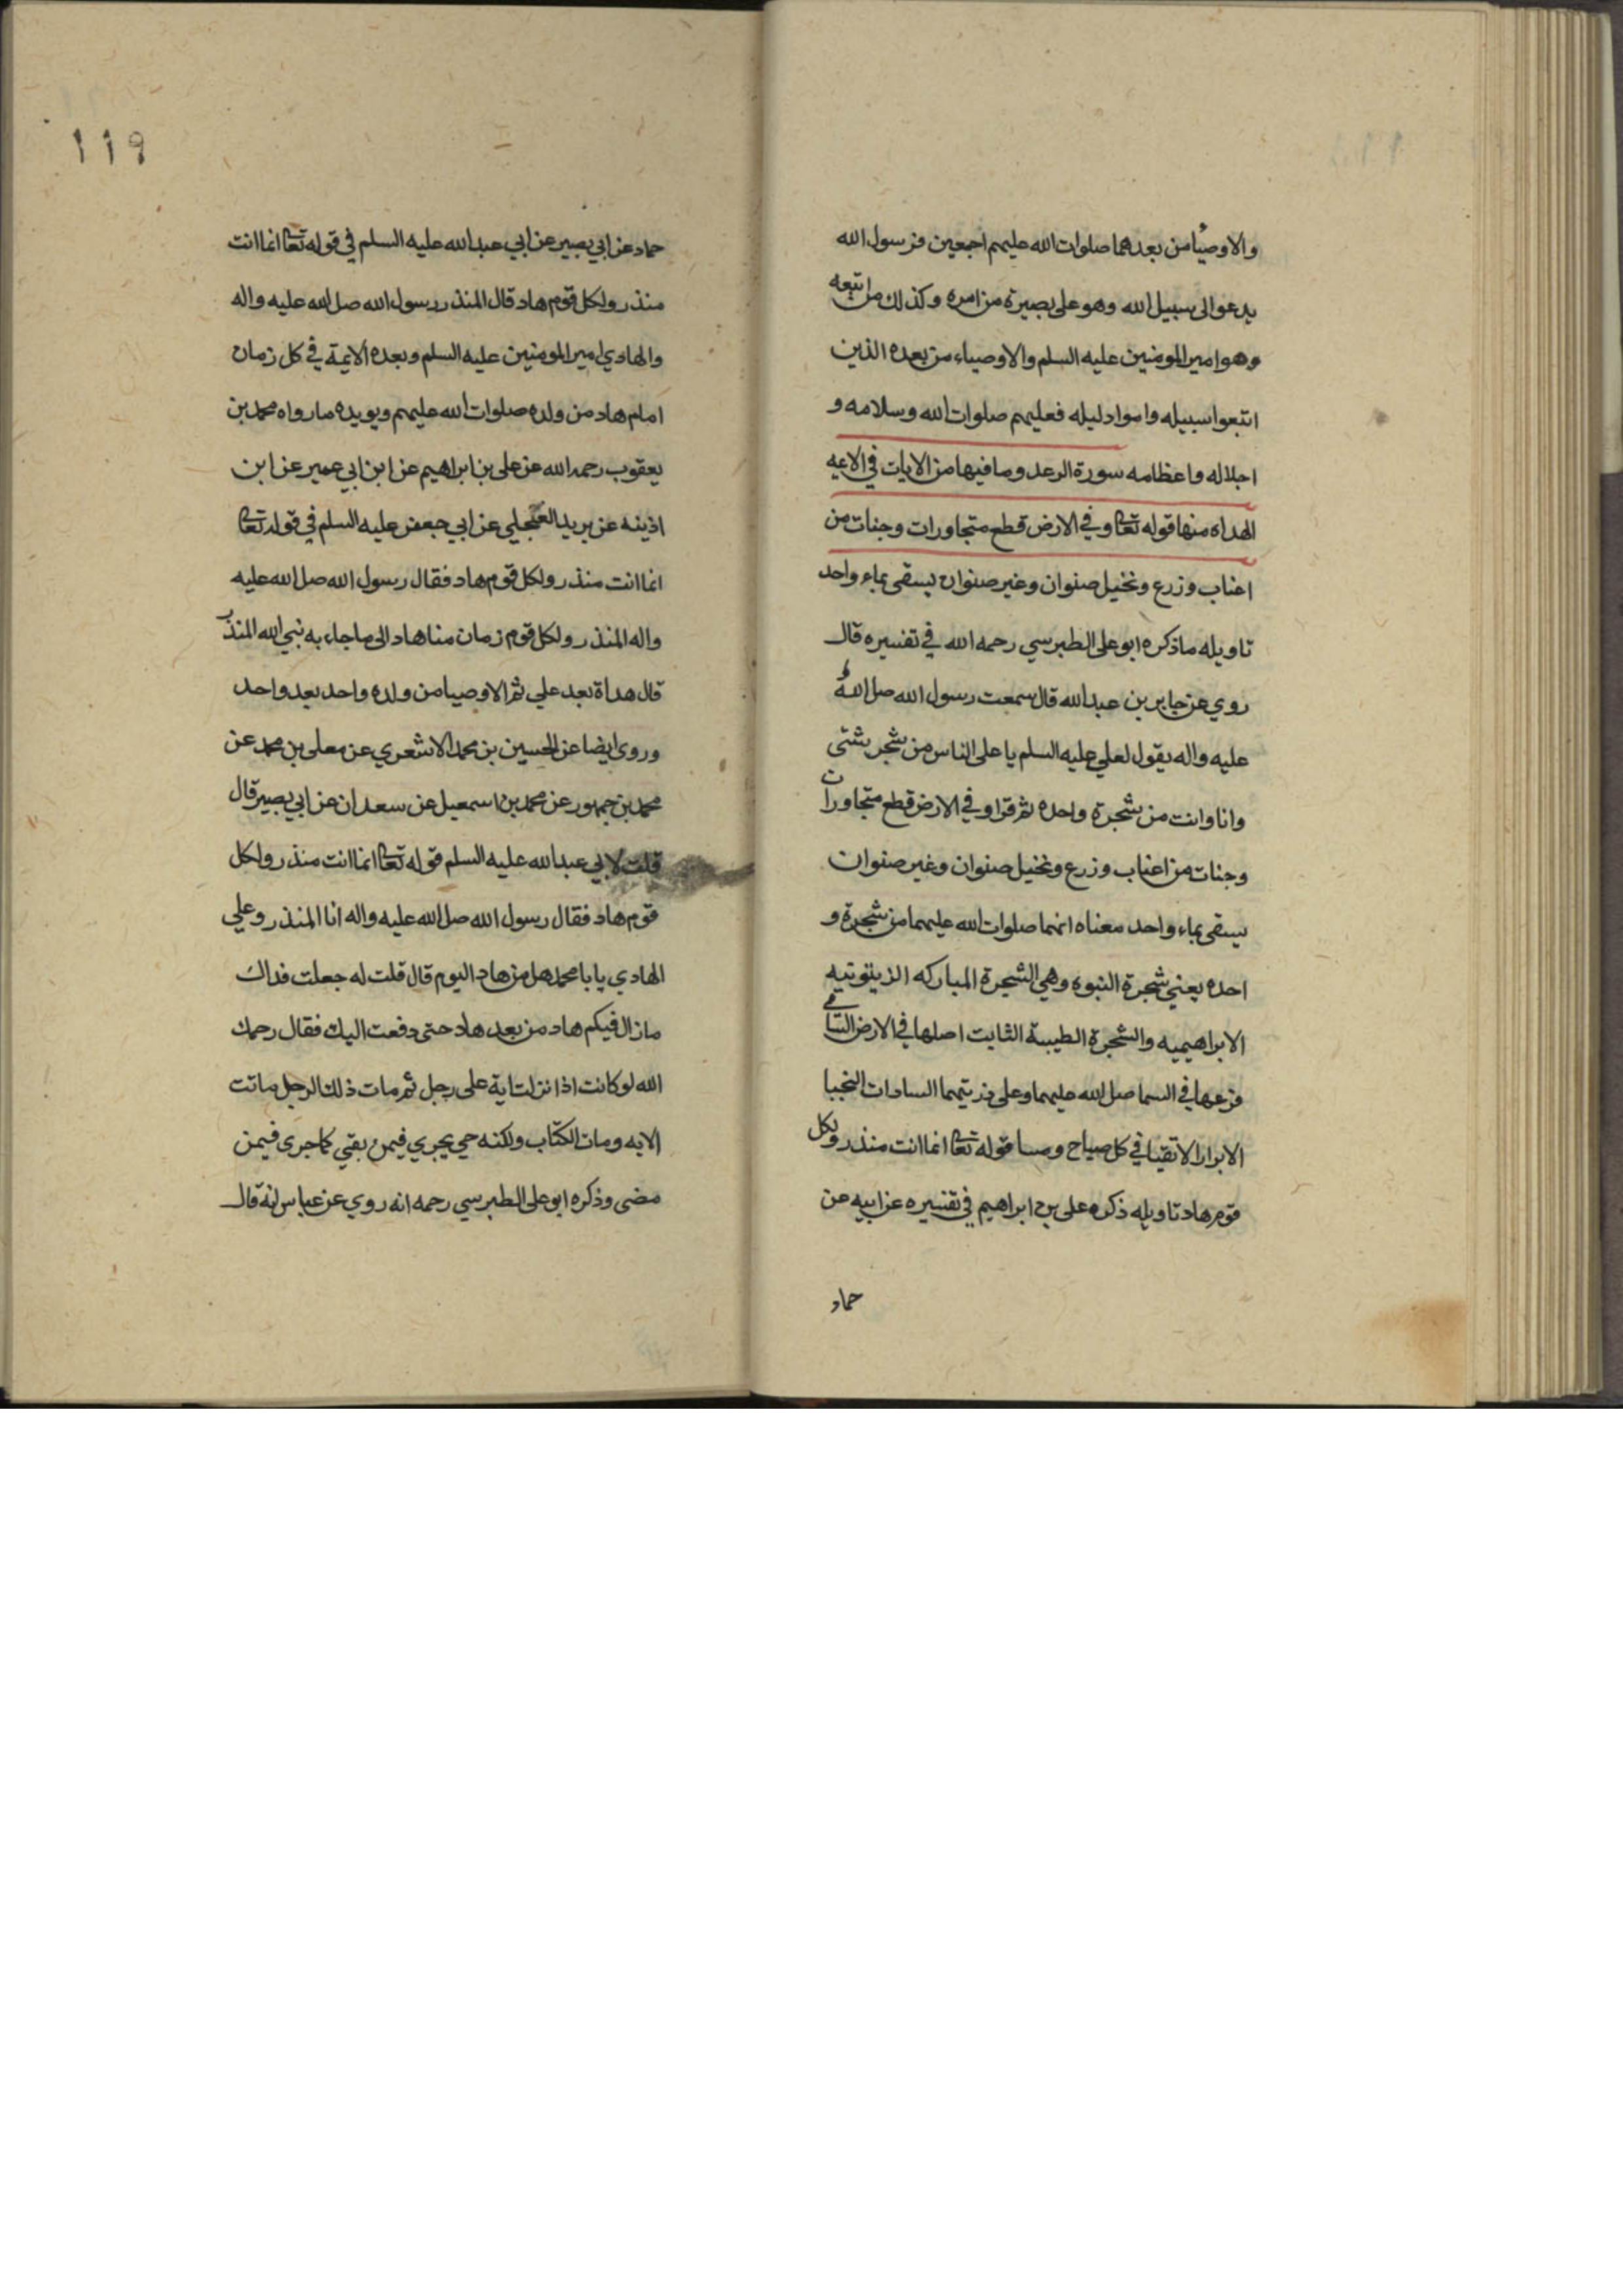 والاوصيا من بعدهما صلوات الله عليهم اجمعين فرسول الله
يدعوا الى سبيل الله وهو على بصيرة من امره وكذلك من اتبعه
وهو امير المومنين عليه السلم والاوصياء من بعده الذين
اتبعوا سبيله واموا دليله فعليهم صلوات الله وسلامه و
اجلاله واعظامه سورة الرعد وما فيها من الايات في الايمه
الهداه منها قوله تعا وفي الارض قطع متجاورات وجنات من
اعناب وزرع ونخيل صنوان وغير صنوان يسقى بماء واحد
تاويله ما ذكره ابو على الطبرسي رحمه الله في تفسيره قال
روي عن جابر بن عبد الله قال سمعت رسول الله صل الله
عليه واله يقول لعلي عليه السلم يا على الناس من شجر شتى
وانا وانت من شجرة واحده ثم قرا وفي الارض قطع متجاورات
وجنات من اعناب وزرع ونخيل صنوان وغير صنوان
يسقى بماء واحد معناه انهما صلوات الله عليهما من شجرة و
احده يعني شجرة النبوه وهي الشجرة المباركه الزيتونيه
الابراهيميه والشجرة الطيبة الثابت اصلها في الارض السامي
فرعها في السما صل الله عليهما وعلى ذريتهما السادات النجبا
الابرار الاتقيا في كل صباح ومسا قوله تعا انما انت منذر ولكل
قوم هاد تاويله ذكره على بن ابراهيم في تفسيره عن ابيه عن
حماد
119
حماد عن ابي بصير عن ابي عبد الله عليه السلم في قوله تعا انما انت
منذر ولكل قوم هاد قال المنذر رسول الله صل الله عليه واله
والهادي امير المومنين عليه السلم وبعده الايمة في كل زمان
امام هاد من ولده صلوات الله عليهم ويويده ما رواه محمد بن
يعقوب رحمه الله عن على بن ابراهيم عن ابن ابي عمير عن ابن
اذينه عن بريد العجلي عن ابي جعفر عليه السلم في قوله تعا
انما انت منذر ولكل قوم هاد فقال رسول الله صل الله عليه
واله المنذر ولكل قوم زمان منا هاد الى ما جاء به نبي الله المنذر
قال هداة بعد علي ثم الاوصيا من ولده واحد بعد واحد
وروى ايضا عن الحسين بن محمد الاشعري عن معلى بن محمد عن
محمد بن جمهور عن محمد بن اسمعيل عن سعدان عن ابي بصير قال
قلت لابي عبد الله عليه السلم قوله تعا انما انت منذر ولكل
قوم هاد فقال رسول الله صل الله عليه واله انا المنذر وعلي
الهادي يا با محمد هل من هاد اليوم قال قلت له جعلت فداك
ما زال فيكم هاد من بعد هاد حتى دفعت اليك فقال رحمك
الله لو كانت اذا نزلت اية على رجل ثم مات ذلك الرجل ماتت
الايه ومات الكتاب ولكنه حي يجري فيمن بقي كما جرى فيمن
مضى وذكره ابو على الطبرسي رحمه انه روي عن عباس انه قال